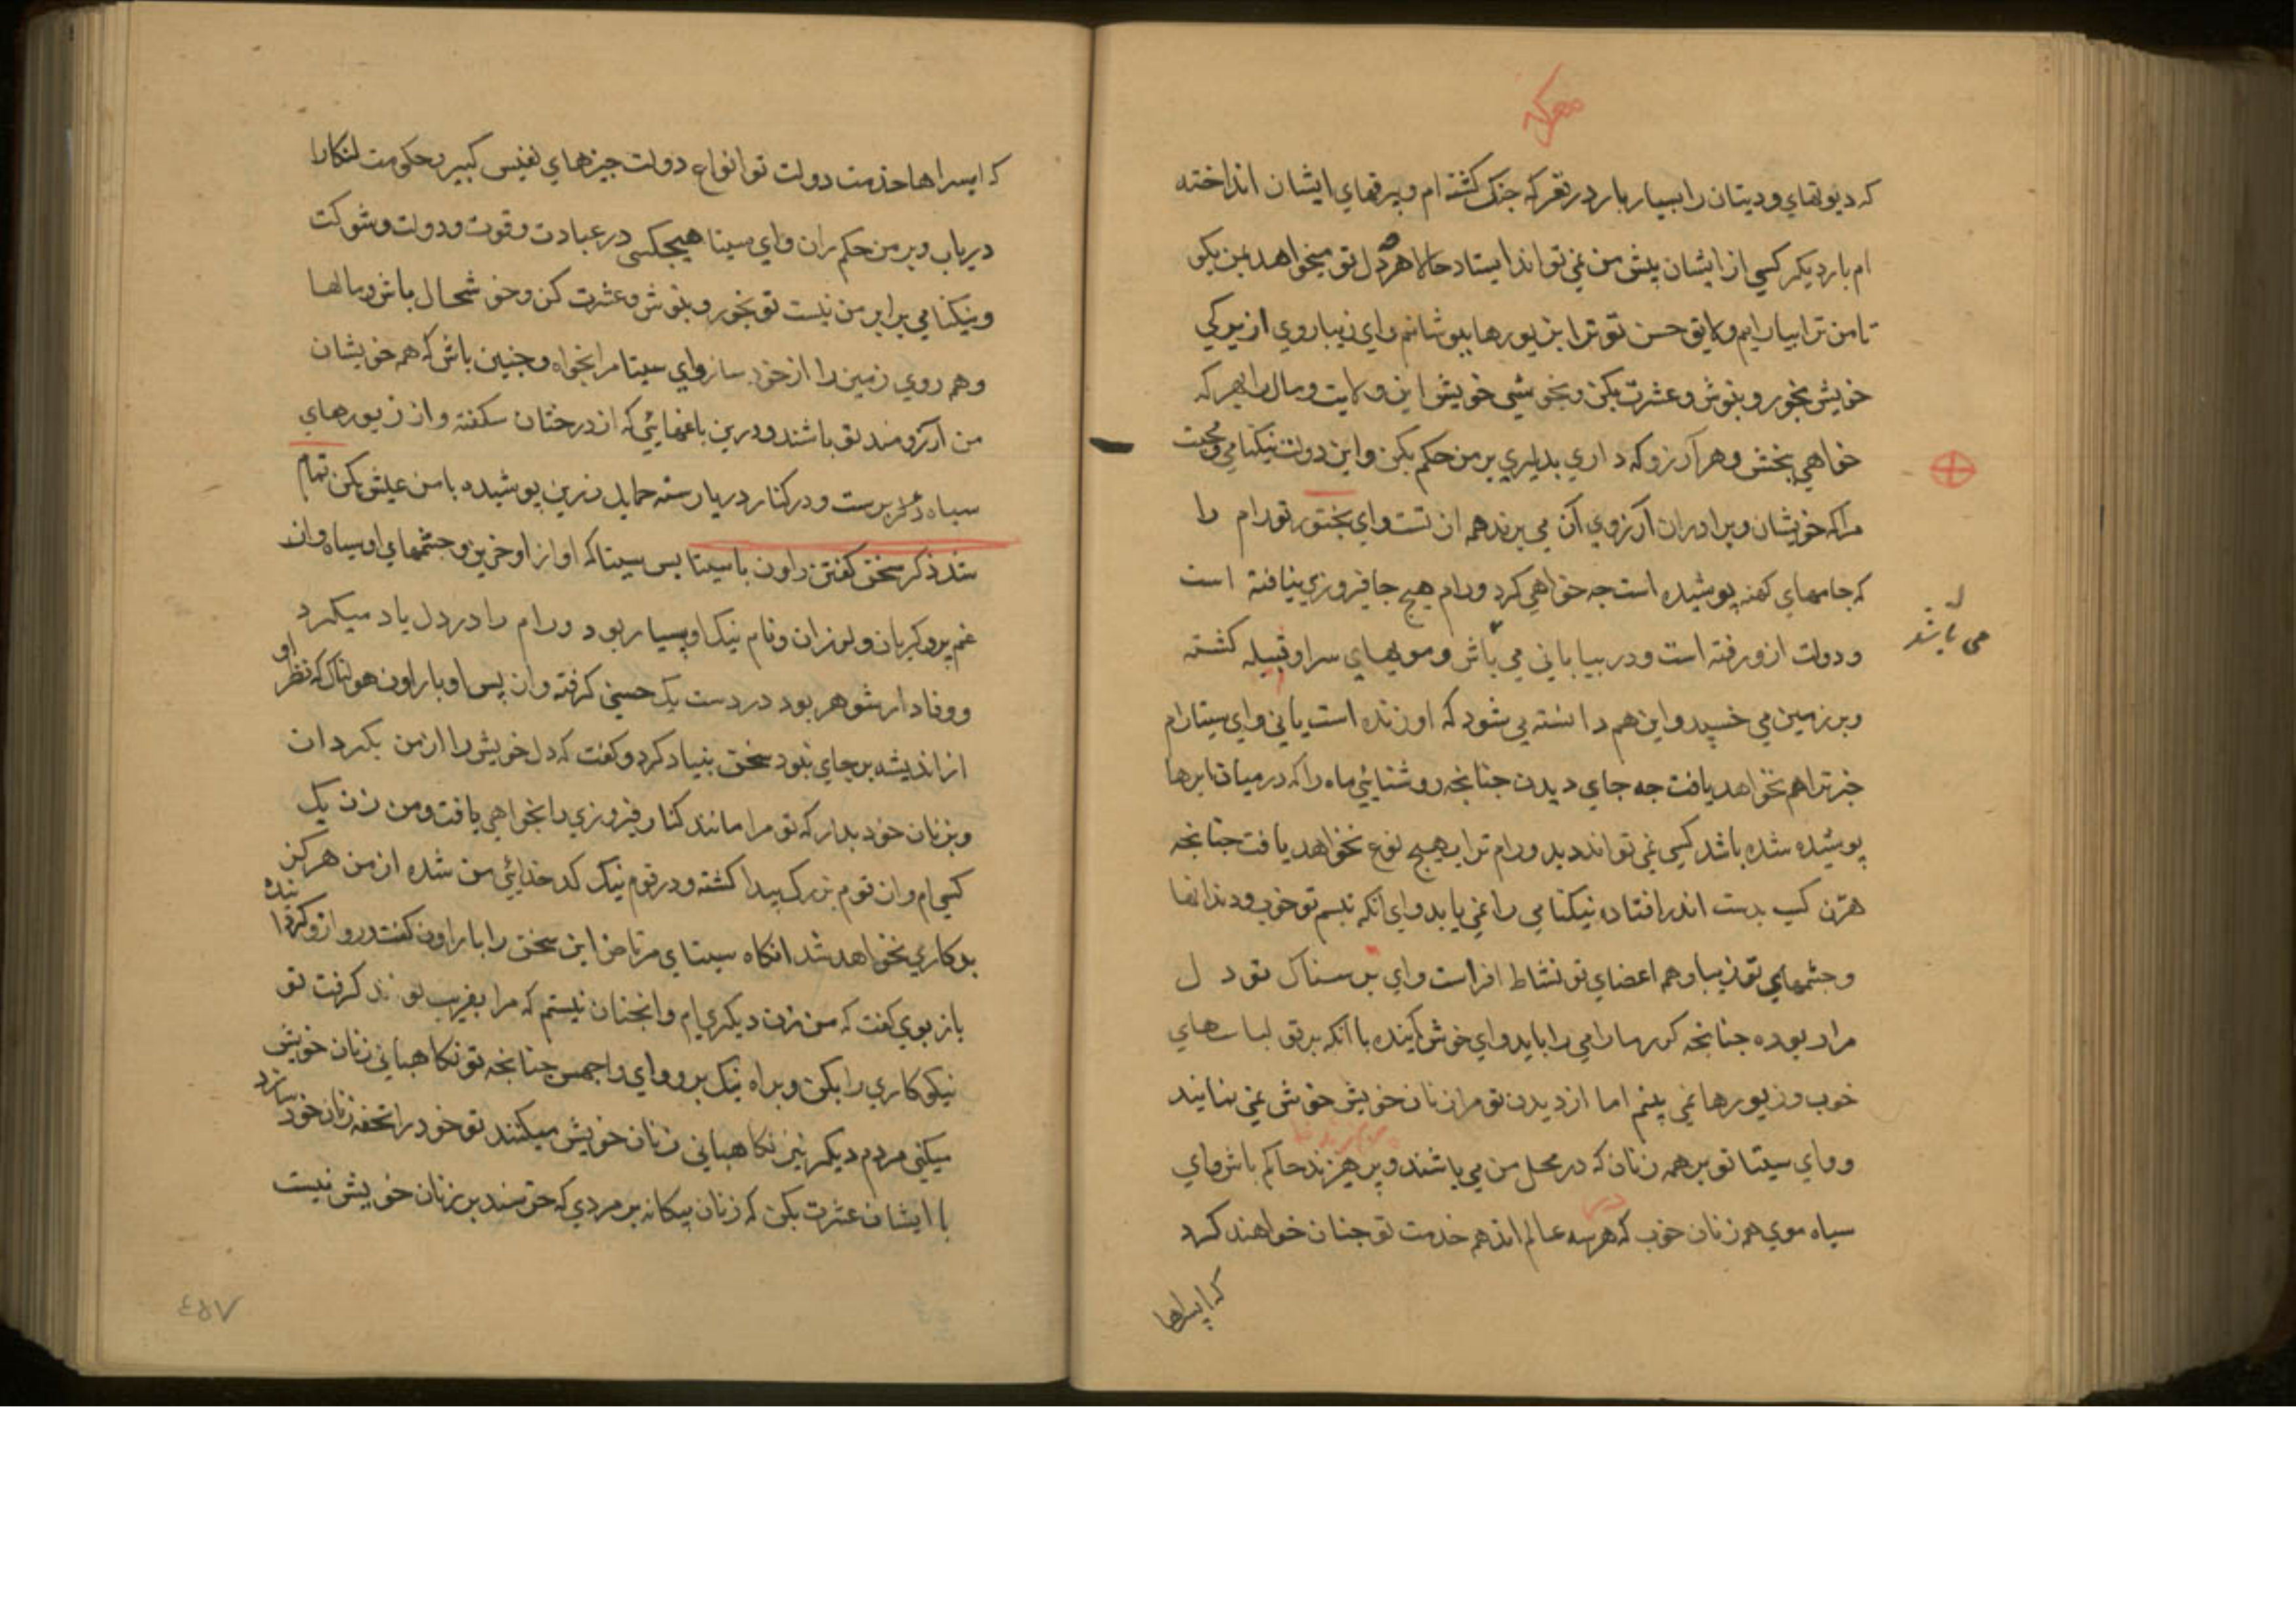 معرکه
که دیوتهای و دیتان را بسیار بار در تعرکه جنک کشته ام و بیرقهای ایشان انداخته
ام بار دیکر کسی از ایشان پیش من نمی تواند ایستاد حالا هرچه دل تو میخواهد بمن بکو
تا من ترا بیارایم و لایق حسن تو ترا این یورها بپوشانم وای زیباروی از یرکی
خویش بخور و بنوش و عشرت بکن و بخوشی خویش این ولایت و مال را بهر که
خواهی بخش و هر آرزو که داری بدلیری بر من حکم بکن و این دولت نیکنامی و محبت
مرا که خویشان و برادران آرزوی آن می برند هم از تست وای بختور تو رام را
که جامهای کهنه پوشیده است جه خواهی کرد و رام هیچ جا فیروزی نیافته است
می باشد
و دولت ازو رفته است و در بیابانی می باش و مویهای سر او قبیله کشته
و بر زمین می خسپد و این هم دانسته یی شود که او زنده است یا نی وای سیتا رام
خبر ترا هم نخواهد یافت جه جای دیدن جنانجه روشنایی ماه را که در میان ابرها
پوشیده شده باشد کسی نمی تواند دید و رام ترا بهیچ نوع نخواهد یافت جنانجه
هرن کسب بدست اندر افتاده نیکنامی را نمی یابد وای آنکه تبسم تو خوب و دندانها
و جشمهای تو زیبا و هم اعضای تو نشاط افزاست وای ترسناک تو دل
مرا ربوده جنانجه کر مارا می رباید وای خوش آینده با آنکه بر تو لباسهای
خوب و زیورها نمی بینم اما از دیدن تو مرا زنان خویش خوش نمی نمایند
و وای سیتا تو بر همه زنان که در محل من می باشند و پرهیزند حاکم باش وای
سیاه موی همه زنان خوب که هر سه عالم اند هم خدمت تو جنان خواهند کرد
که اپسراها
که اپسراها خدمت دولت تو انواع دولت جیزهای نفیس کبیر و حکومت لنکا را
دریاب و بر من حکم ران وای سیتا هیجکسی در عبادت و قوت و دولت و شوکت
و نیکنامی برابر من نیست تو بخور و بنوش و عشرت کن و خوشحال باش و مالها
و هم روی زمین را از خود ساز وای سیتا مرا بخواه و جنین باش که هم خویشان
من آرزومند تو باشند و درین باغهایی که از درختان شکفته و از زیورهای
سیاه پرست و در کنار دریا رسته حمایل زرین پوشیده با من عیش بکن تمام
شد ذکر سخن کفتن راون با سیتا پس سیتا که آواز او حزین و جشمهای او سیاه و از
غم پر و کریان و لرزان و نام نیک او بسیار بود و رام را در دل یاد میکرد
و وفادار شوهر بود در دست یک حسنی کرفته و از پس او با راون هولناک که نظر او
از اندیشه بر جای نبود سخن بنیاد کرد و کفت که دل خویش را از من بکردان
و بزنان خود بدار که تو مرا مانند کنار فیروزی را نخواهی یافت و من زن یک
کسی ام و از قوم بزرک پیدا کشته و در قوم نیک کدخدایی من شده از من هرکز
بدکاری نخواهد شد انکاه سیتای مرتاض این سخن را با راون کفت و رو ازو کردانیده
باز بوی کفت که من زن دیکری ام و انجنان نیستم که مرا بفریب تواند کرفت تو
نیکوکاری را بکن و براه نیک برو وای راجهس جنانجه تو نکاهبانی زنان خویش
میکنی مردم دیکر نیز نکاهبانی زنان خویش میکنند تو خود را تحفه زنان خود سازد
با ایشان عشرت بکن که زنان بیکانه بر مردی که خرسند بر زنان خویش نیست
٤٥٧